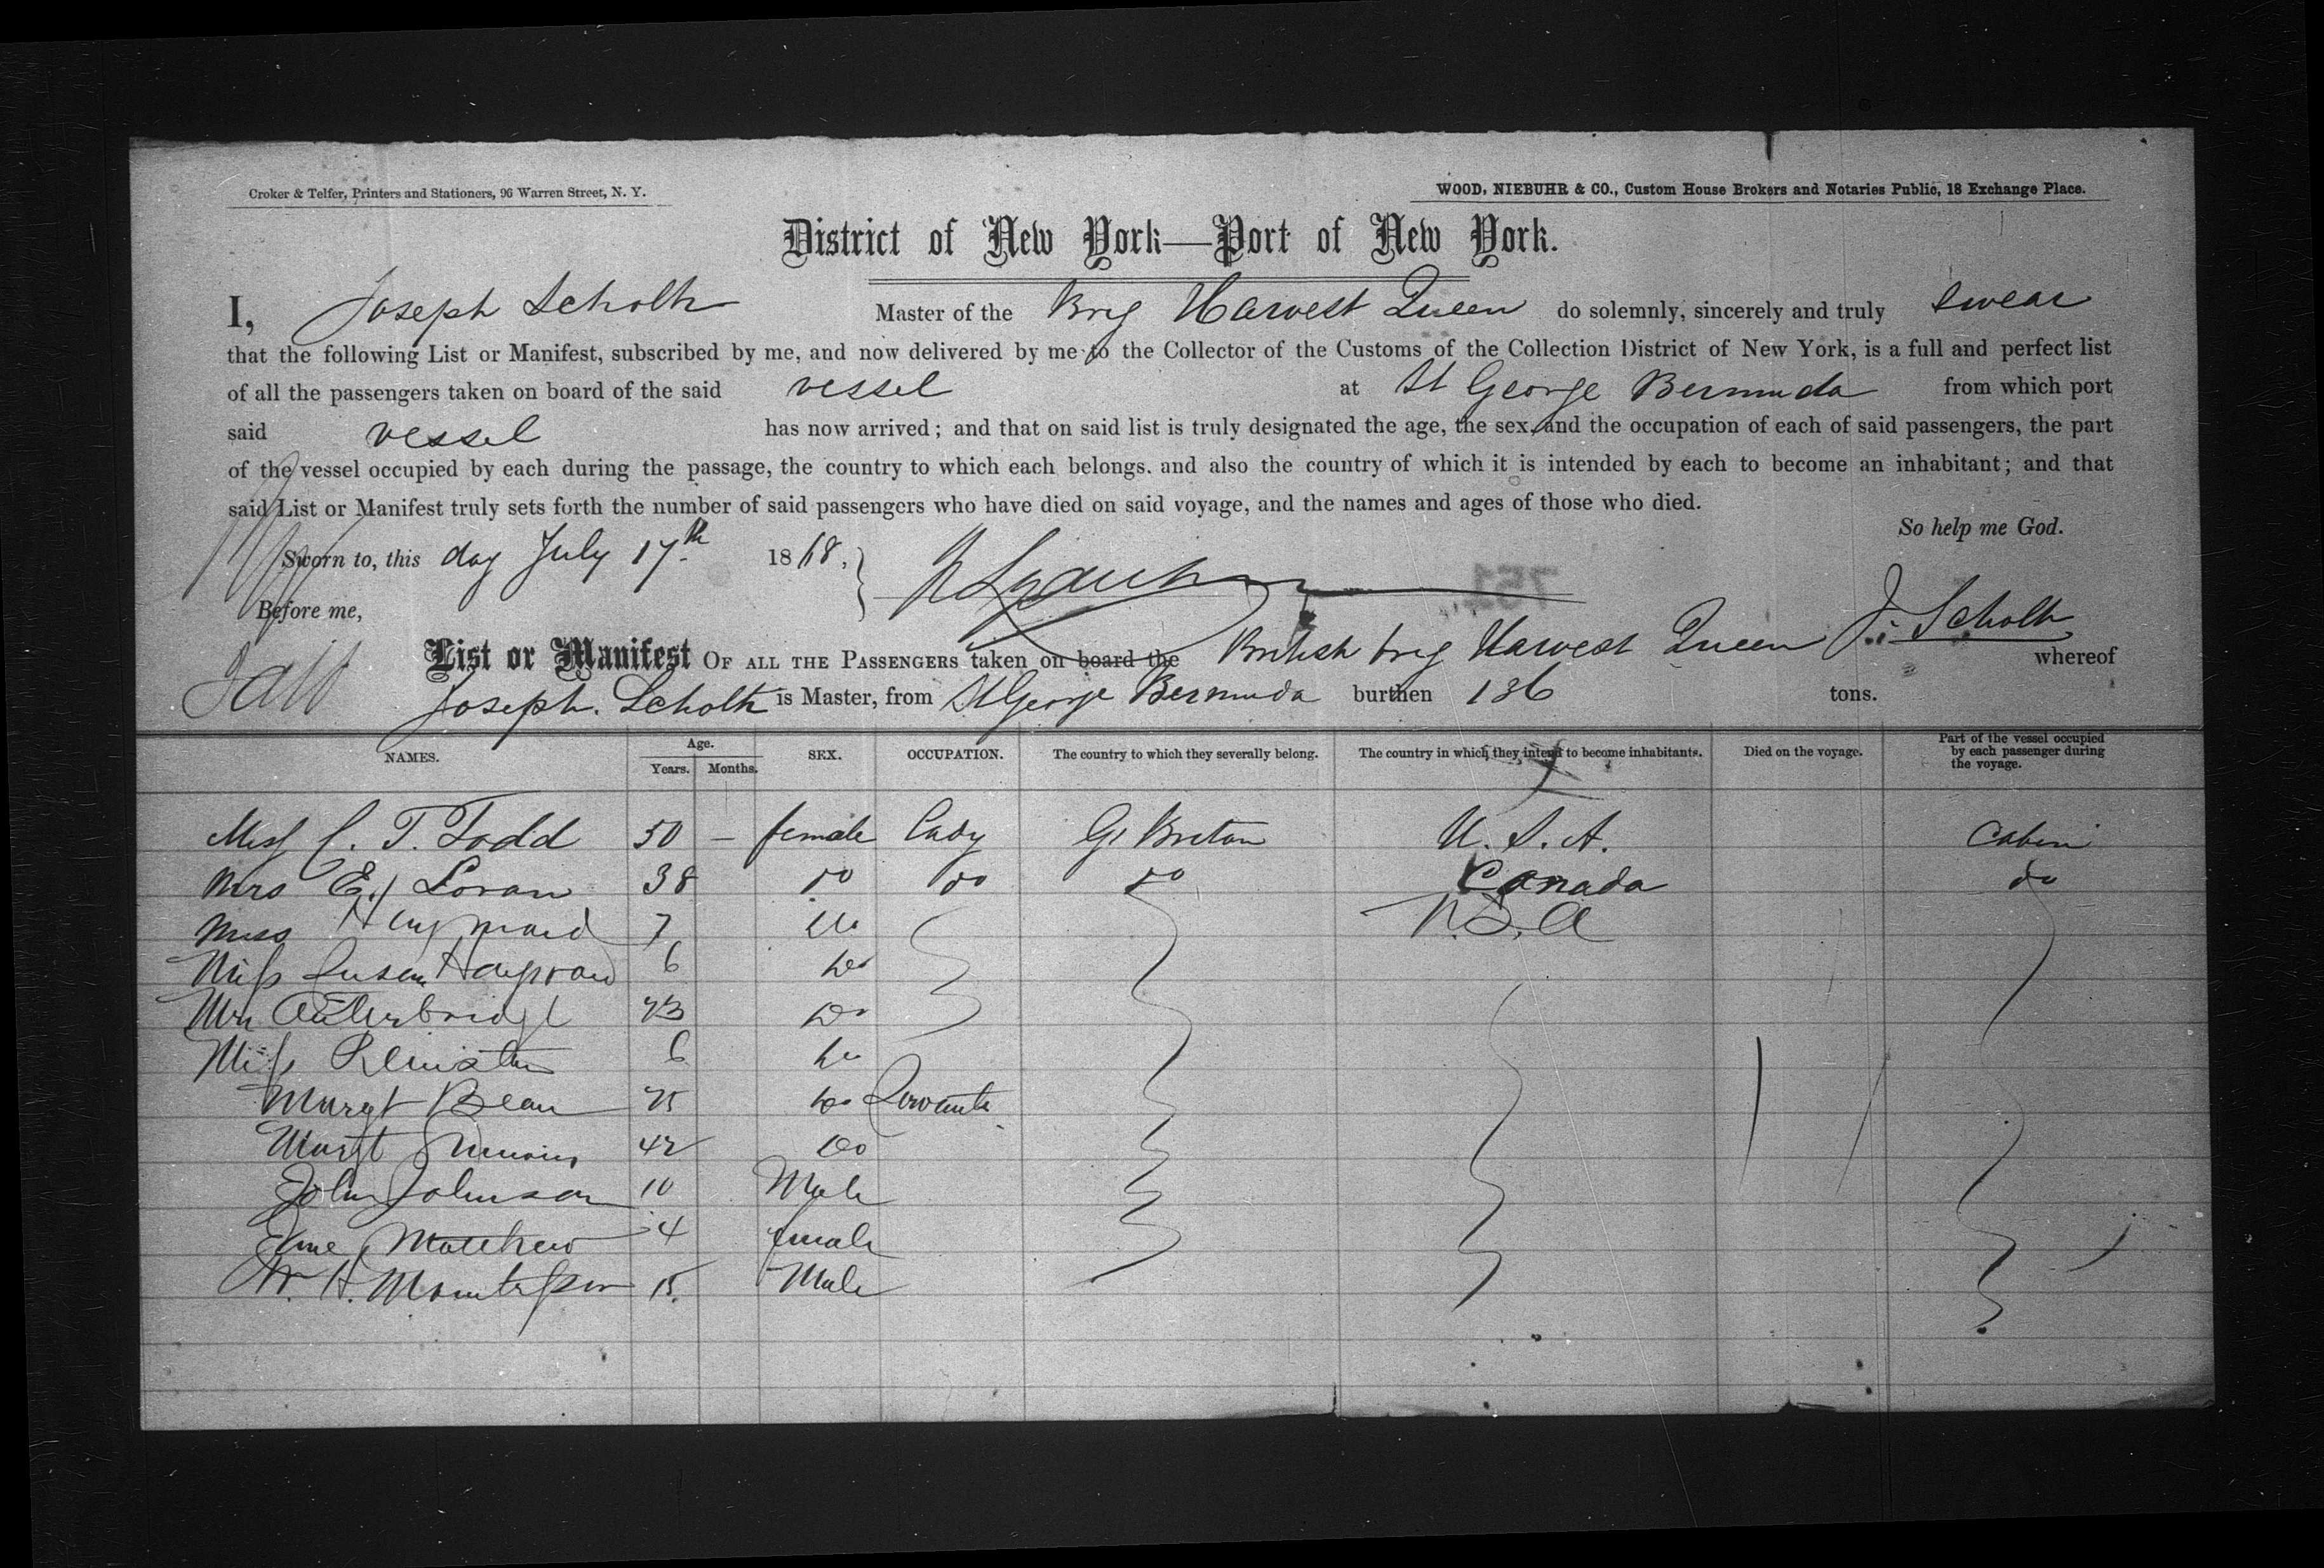 Croker & Telfer, Printers and Stationers, 96 Warren Street, N. Y.
WOOD, NIEBUHR & CO., Custom House Brokers and Notaries Public, 18 Exchange Place.
District of New York—Port of New York.
I, Joseph Scholtz Master of the Brig Harvest Queen do solemnly, sincerely and truly swear
that the following List or Manifest, subscribed by me, and now delivered by me to the Collector of the Customs of the Collection District of New York, is a full and perfect list
of all the passengers taken on board of the said vessel at St George Bermuda from which port
said vessel has now arrived; and that on said list is truly designated the age, the sex, and the occupation of each of said passengers, the part
of the vessel occupied by each during the passage, the country to which each belongs. and also the country of which it is intended by each to become an inhabitant; and that
said List or Manifest truly sets forth the number of said passengers who have died on said voyage, and the names and ages of those who died.
So help me God.
Sworn to, this day July 17th 1868,
Before me,
J. Scholtz
751
List or Manifest OF ALL THE PASSENGERS taken on board the British brig Harvest Queen whereof
Joseph. Scholtz is Master, from St George Bermuda burthen 136 tons.
NAMES. Age. Years. Months. SEX. OCCUPATION. The country to which they severally belong. The country in which they intend to become inhabitants. Died on the voyage. Part of the vessel occupied by each passenger during the voyage.
Miss C. T. Todd 50 — female Lady Gt Britan U. S. A. Cabin
Mrs E. Loran 38 do do do Canada do
Miss Hayward 7 do U.S.A
Miss Susan Hayward 6 do
Mrs Outerbridge 73 do
Miss 6 do
Margt Bean 25 do Servants
Margt 42 do
John Johnson 10 Male
Matthew 4 female
W. H. 15. Male